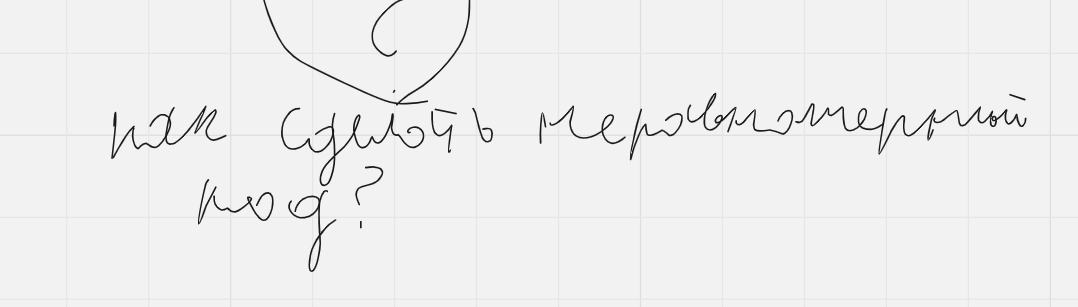 как сделать неравномерный
код?